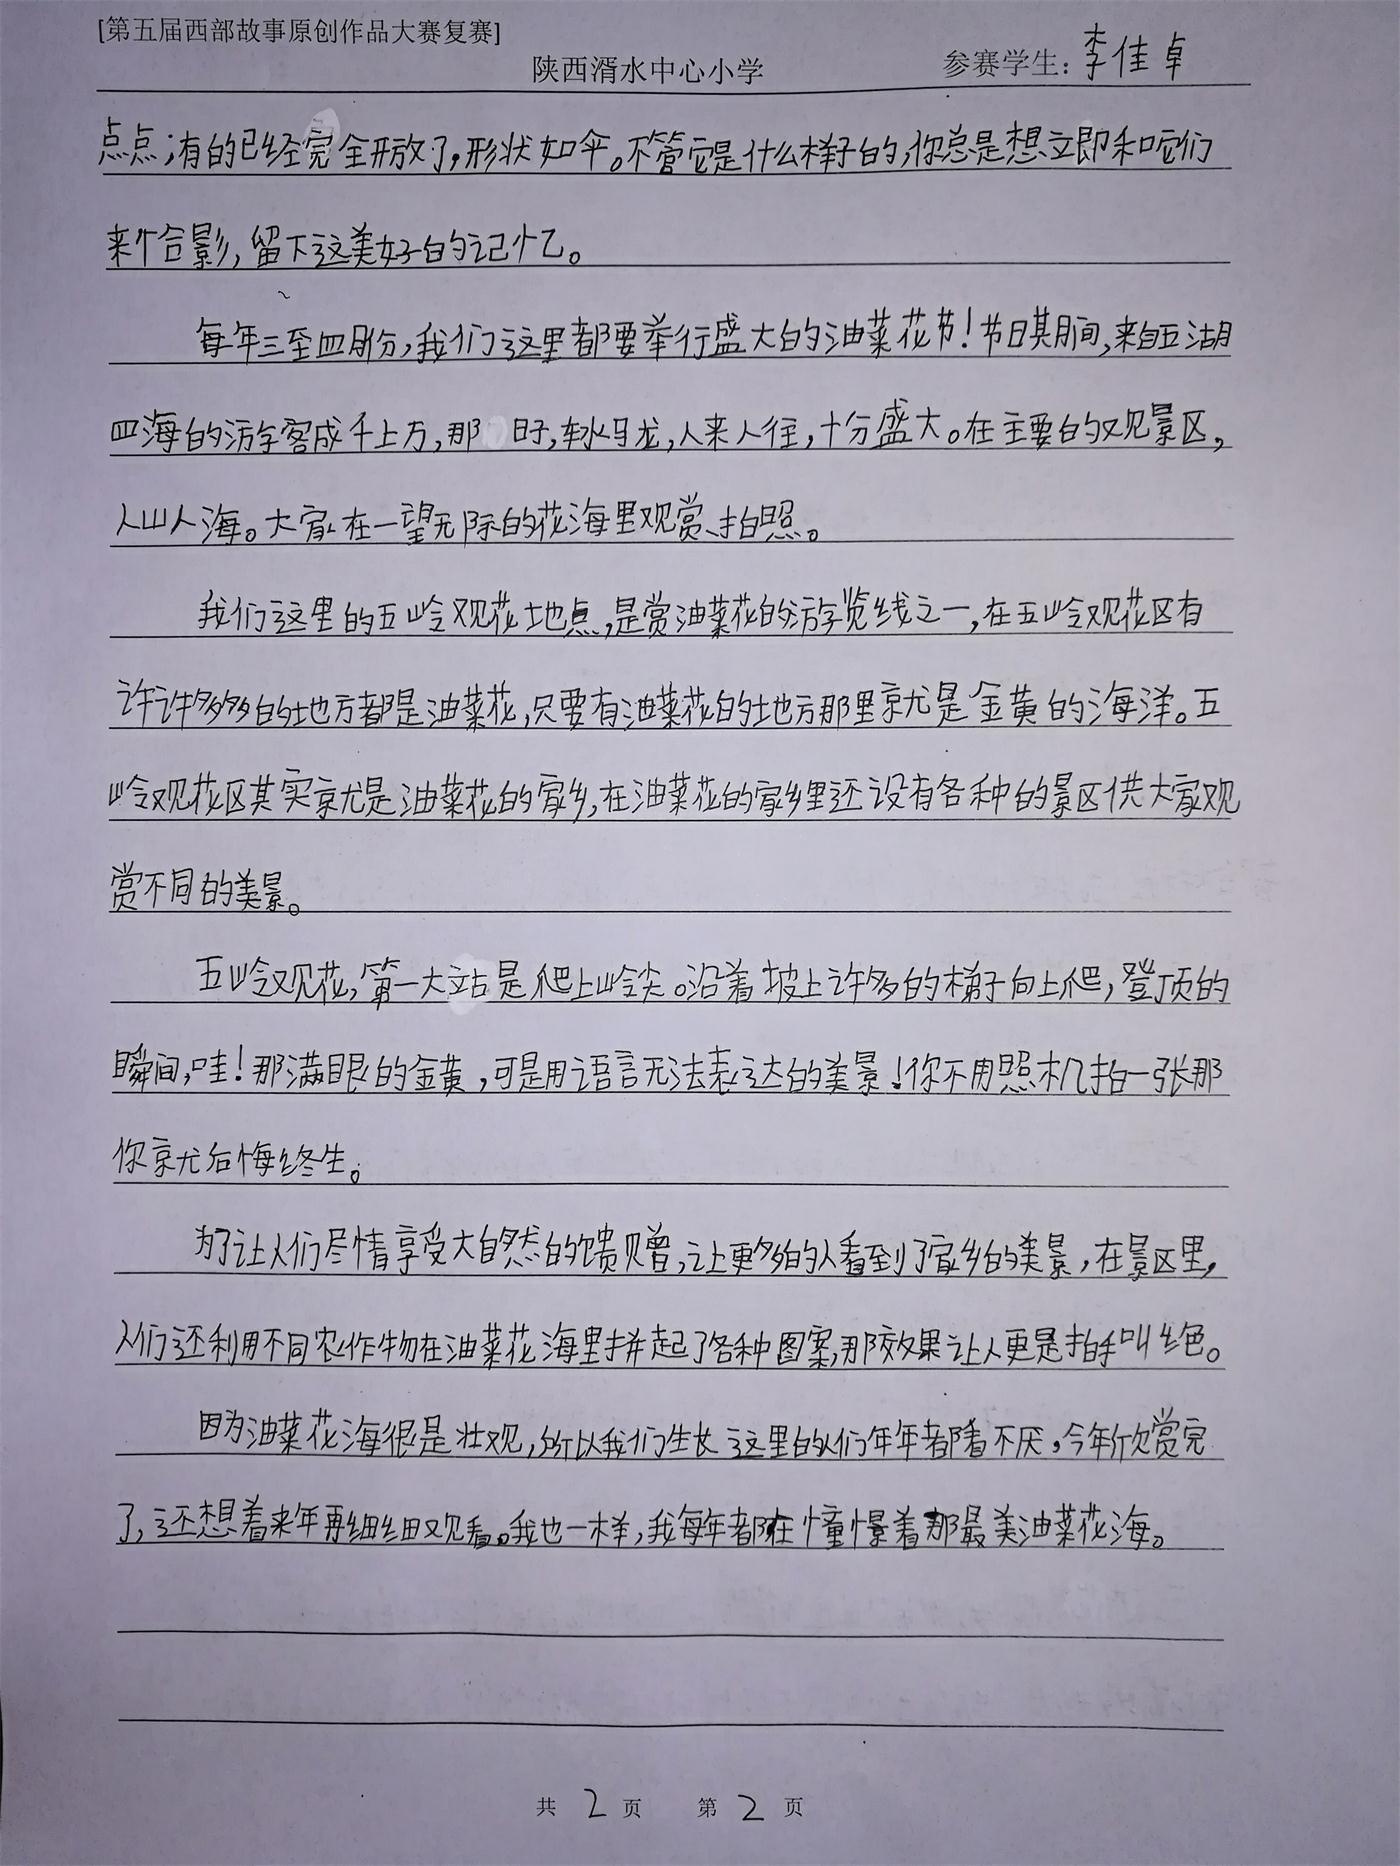 [第五届西部故事原创作品大赛复赛]
陕西湑水中心小学
参赛学生：李佳卓
点点；有的已经完全开放了，形状如伞。不管它是什么样子的，你总是想立即和它们
来个合影，留下这美好的记忆。
每年三至四月份，我们这里都要举行盛大的油菜花节！节日其期间，来自五湖
四海的游客成千上万，那 日子，车水马龙，人来人往，十分盛大。在主要的观景区，
人山人海。大家在一望无际的花海里观赏、拍照。
我们这里的五岭观花地点，是赏油菜花的游览线之一，在五岭观花区有
许许多多的地方都是油菜花，只要有油菜花的地方那里就是金黄的海洋。五
岭观花区其实就是油菜花的家乡，在油菜花的家乡里还设有各种的景区供大家观
赏不同的美景。
五岭观花，第一大站是爬上岭尖。沿着坡上许多的梯子向上爬，登顶的
瞬间，哇！那满眼的金黄，可是用语言无法表达的美景！你不用照相机拍一张那
你就后悔终生。
为了让人们尽情享受大自然的馈赠，让更多的人看到了家乡的美景，在景区里，
人们还利用不同农作物在油菜花海里拼起了各种图案，那效果让人更是拍手叫绝。
因为油菜花海很是壮观，所以我们生长这里的人们年年都看不厌，今年欣赏完
了，还想着来年再细细观看。我也一样，我每年都在憧憬着那最美油菜花海。
共 2 页 第 2 页